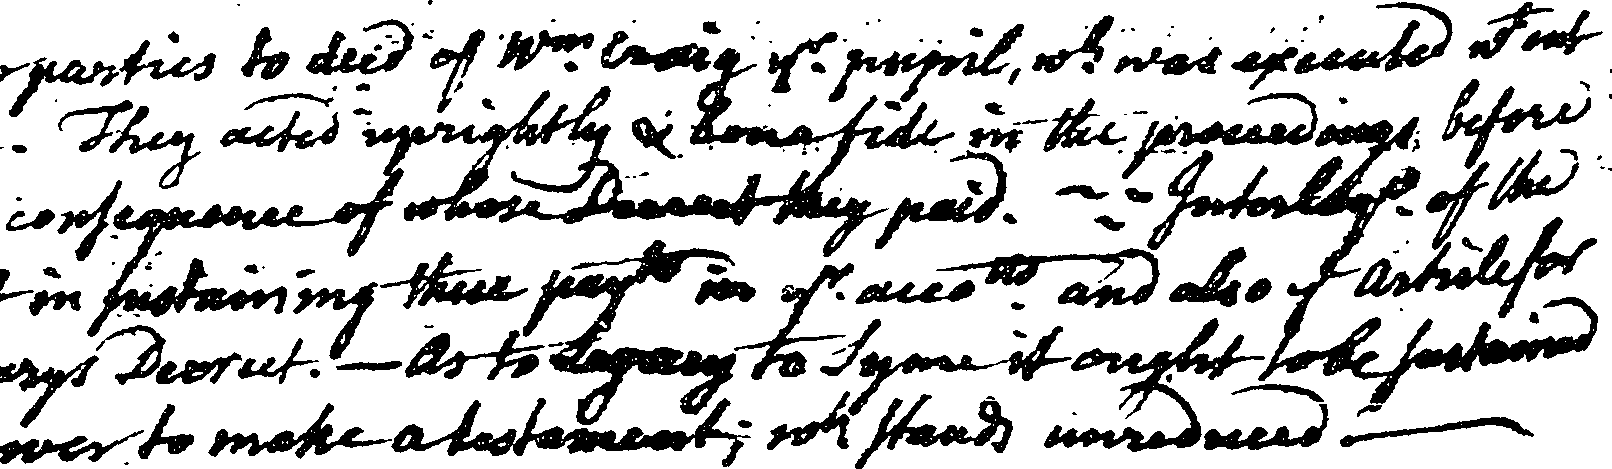 parties to deed of Wm. Craig yr. pupil, wh was executed wt out
- They acted uprightly & bona fide in the proceedings before
consequence of whose Decreet they paid. Interloqr. of the
in sustaining these payts in yr. accots. and also ye Article for
Decreet. — As to Legacy to Syme it ought to be sustained
to make a testament; wh stands unreduced —